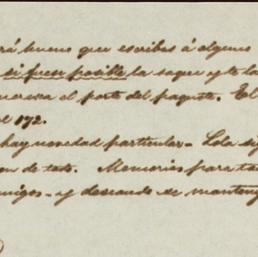 rá bueno que escribas á alguno
si fuese posible la saque y te la
el porte del paquete. El
el 172.
hay novedad particular - Lola si
on de todo. Memorias para ta
migos - y deseando se manteng